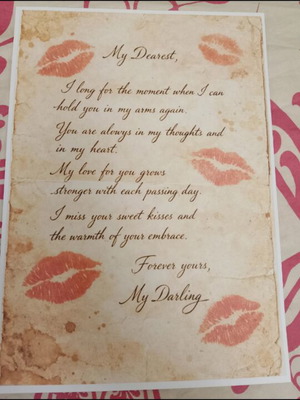 My Dearest,
I long for the moment when I can
hold you in my arms again.
You are alwoys in my thoughts and
in my heart.
My love for you grows
stronger with each passing day.
I miss your sweet kisses and
the warmth of your embrace.
Forever yours,
My Darling